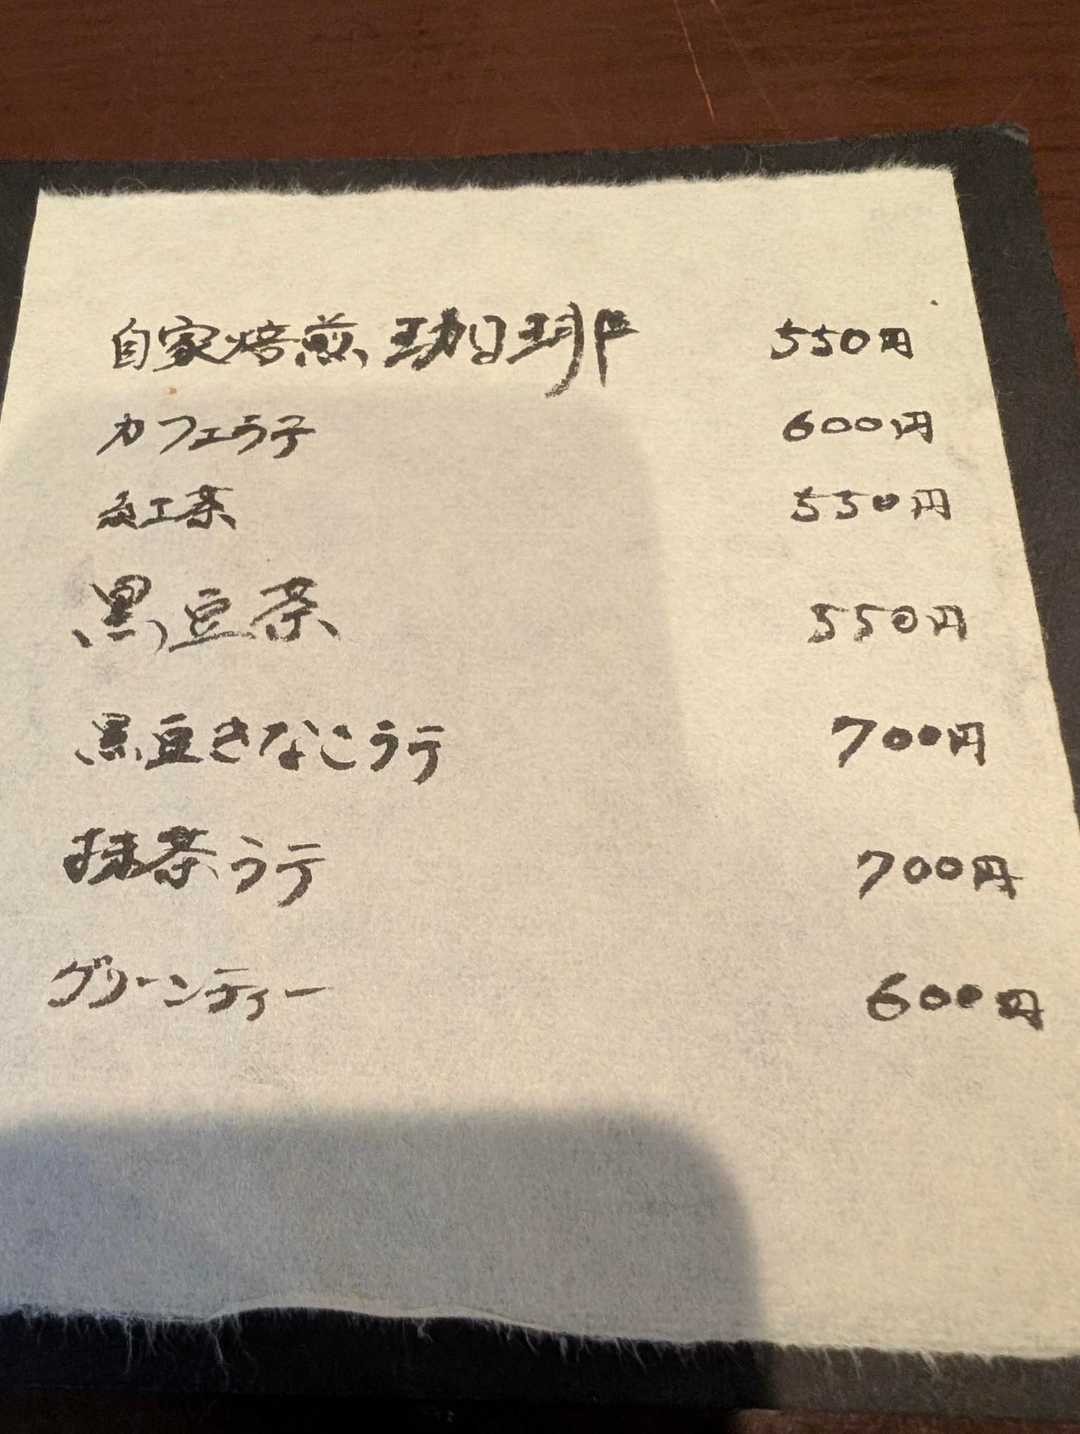 自家焙煎珈琲 550円
カフェラテ 600円
紅茶 550円
黒豆茶 550円
黒豆きなこラテ 700円
抹茶ラテ 700円
グリーンティー 600円